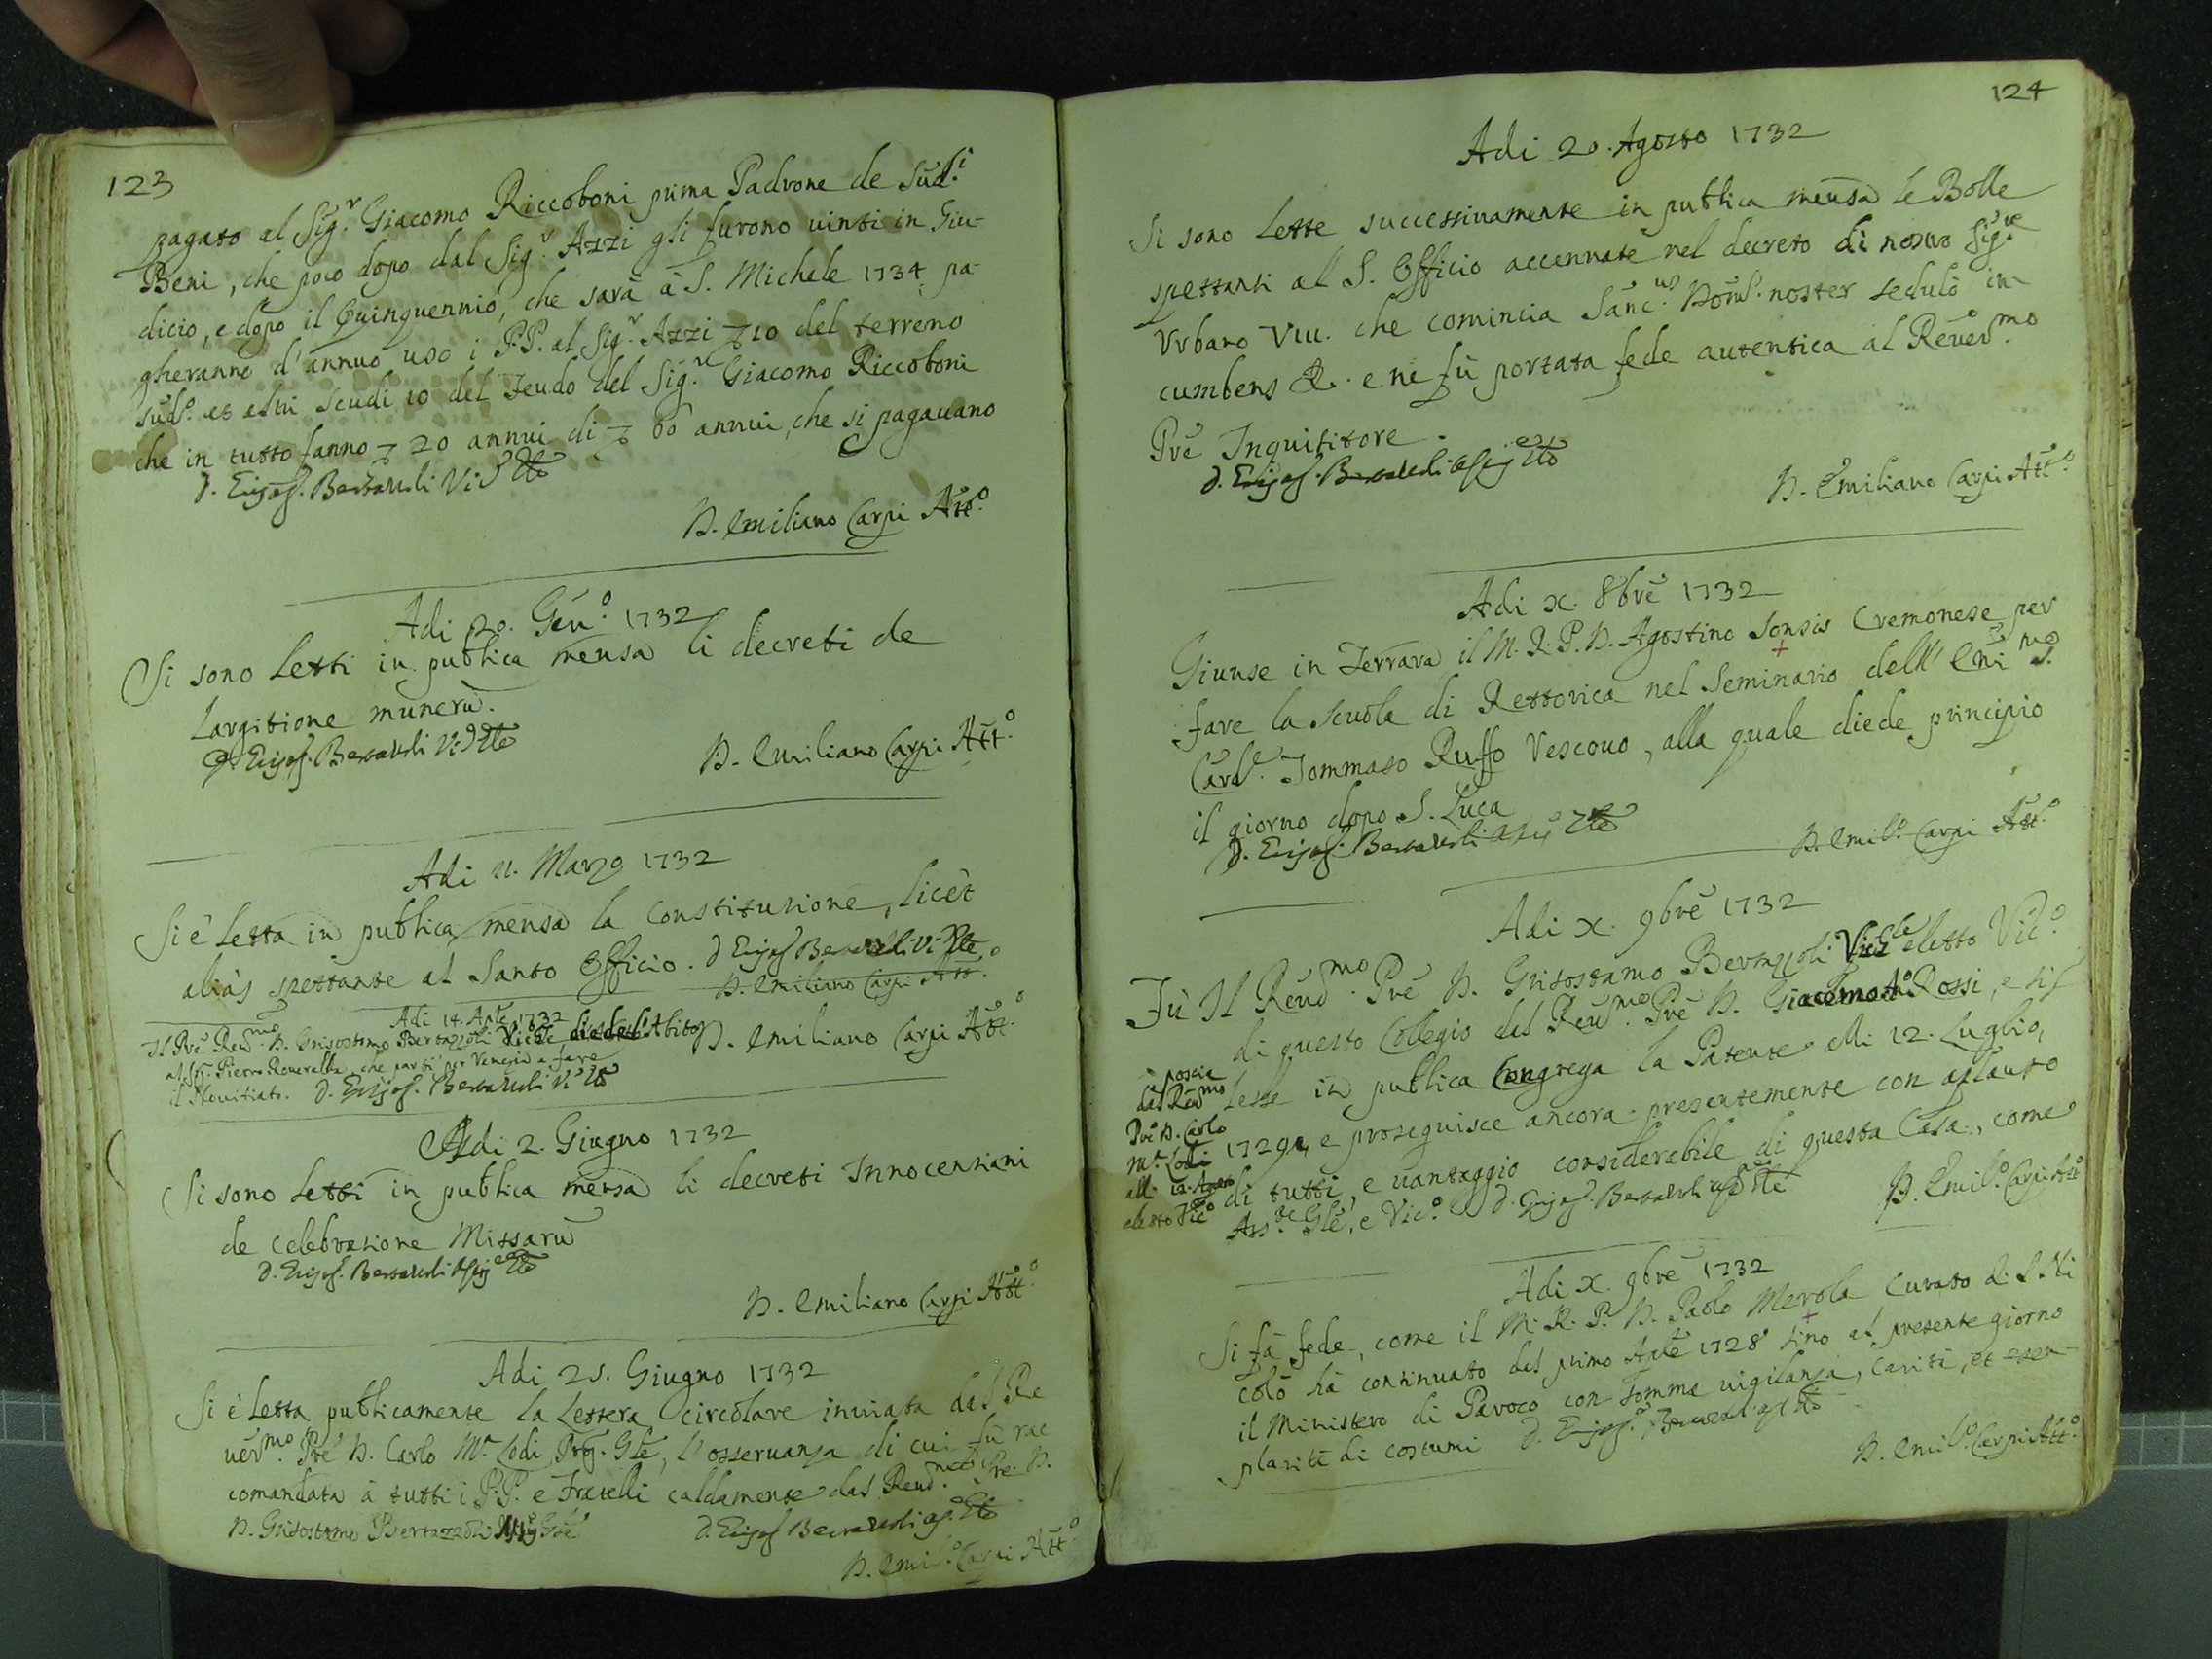 123
pagato al Sig.r Giacomo Riccoboni prima Padrone de Sud.i
Beni, che poco dopo dal Sig.r Azzi gli furono vinti in Giu-
dicio, e dopo il Quinquennio, che sarà à S. Michele 1734 pa-
gheranno d'annuo uso i P.P. al Sig.r Azzi 10 del terreno
sud.o et altri scudi 10 del Feudo del Sig.r Giacomo Riccoboni
che in tutto fanno 20 annui di 60 annui, che si pagavano
D. Emiliano Carpi Att.o
Adi 20. Gen.o 1732
Si sono letti in publica mensa li decreti de
largitione munerū.
D. Emiliano Carpi Att.o
Adi 11. Marzo 1732
Si è letta in publica mensa la Constitutione, licèt
aliàs spettante al Santo Officio.
D. Emiliano Carpi Att.o
Adi 14. Aple 1732
Il Pre Reud.mo D. Grisostomo Bertazzoli diede l'Abito
al Sig. Pietro Roverella, che partì per Venezia a fare
il Novitiato.
D. Emiliano Carpi Att.o
Adi 2. Giugno 1732
Si sono letti in publica mensa li decreti Innocenziani
de celebratione Missarū
D. Emiliano Carpi Att.o
Adi 25. Giugno 1732
Si è letta publicamente la lettera circolare inviata dal Re
uer.mo Pre D. Carlo M.a Lodi Prep. Gle, l'osservanza di cui fù rac
comandata à tutti i P.P. e Fratelli caldamente dal Reud.mo Pre D.
D. Grisostomo Bertazzoli
D. Emil.o Carpi Att.o
124
Adi 20. Agosto 1732
Si sono lette successivamente in publica mensa le Bolle
spettanti al S. Officio accennate nel decreto di nostro Sig.re
Urbano VIII. che comincia Sanc.us Doms. noster sedulò in-
cumbens &. e ne fù portata fede autentica al Reuer.mo
Pre Inquisitore.
D. Emiliano Carpi Att.o
Adi X. 8bre 1732
Giunse in Ferrara il M. R. P. D. Agostino Sonsis Cremonese per
fare la scuola di Rettorica nel Seminario dell' Emi.mo S.
Card.e Tommaso Ruffo Vescovo, alla quale diede principio
il giorno dopo S. Luca
D. Emil.o Carpi Att.o
Adi X. 9bre 1732
Fù Il Reud.mo Pre D. Grisostomo Bertazzoli eletto Vic.o
di questo Collegio dal Reud.mo Pre D. Rossi, e si
lesse in publica Congrega la Patente alli 12. Luglio,
poscia
dal Reud.mo
Pre D. Carlo
M.a Lodi
alli 12. Agosto
eletto Vic.o
1729, e proseguisce ancora presentemente con aplauso
di tutti, e vantaggio considerabile di questa Casa, come
Ass.te Gle, e Vic.o
D. Emil.o Carpi Att.o
Adi X. 9bre 1732
Si fà fede, come il M. R. P. D. Paolo Merola Curato di S. Ni
colò hà continuato dal primo Aple 1728 sino al presente giorno
il Ministero di Paroco con somma vigilanza, carità, et esem-
plarità di costumi
D. Emil.o Carpi Att.o